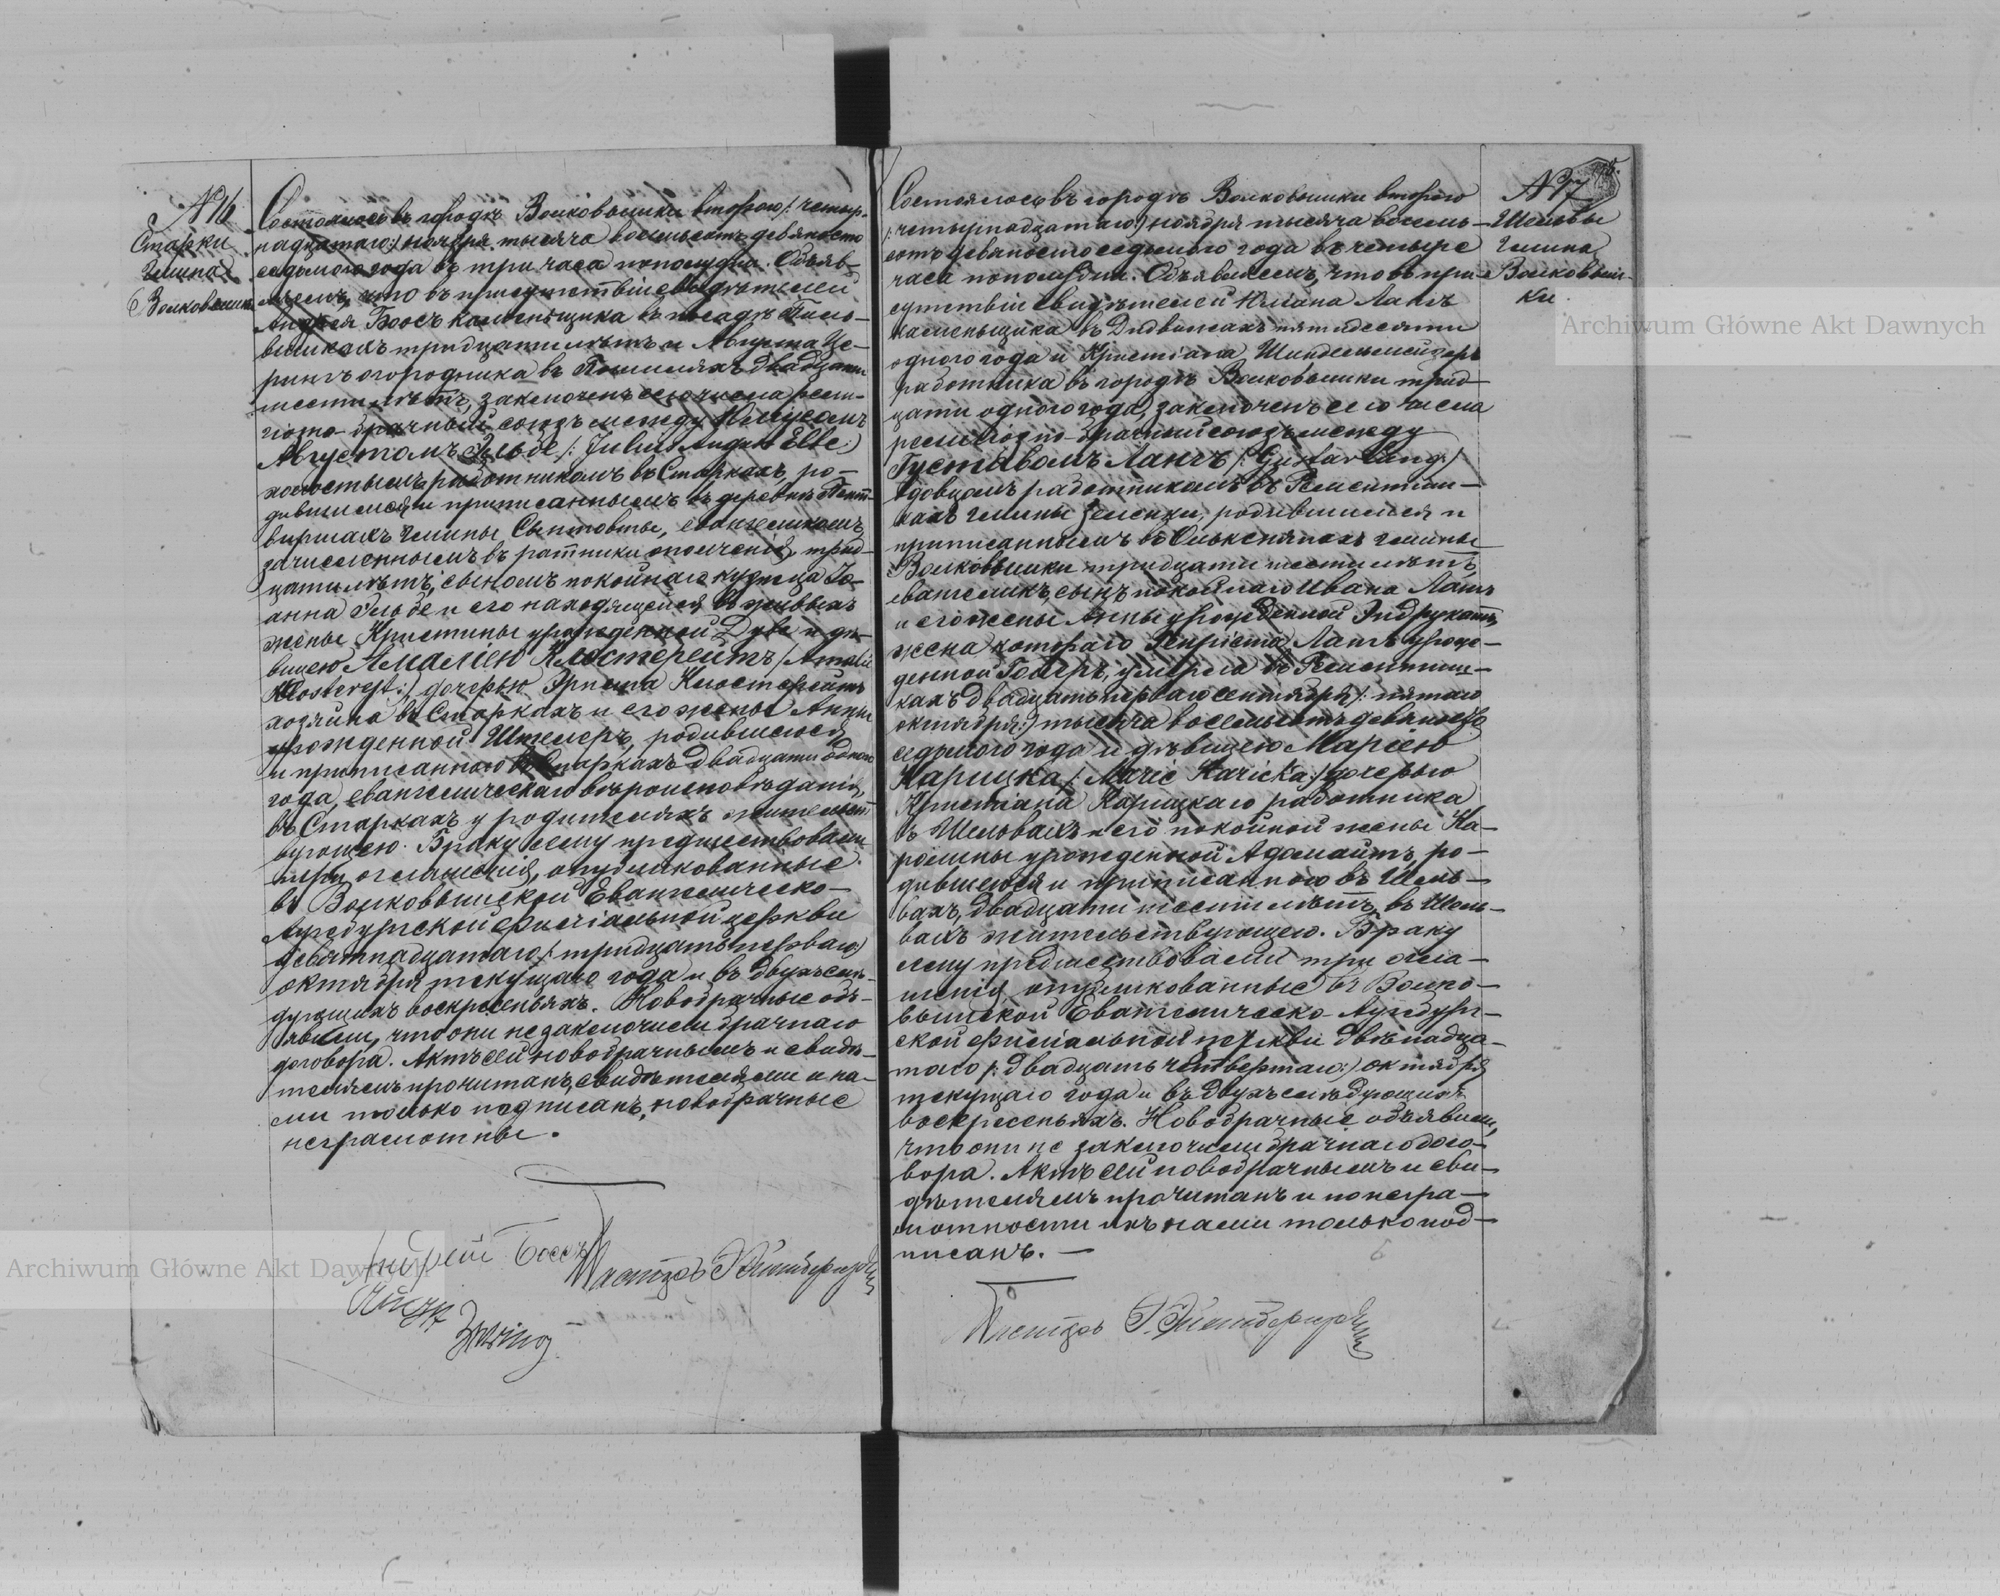 № 16
Старки
Гмина
Волковышки
Состоялось въ городѣ Волковышки второго /: четыр-
надцатаго :/ ноября тысяча восемьсотъ девяносто
седьмого года въ три часа пополудни. Объяв-
ляемъ, что въ присутствіи свидѣтелей
Андрея Боосъ каменьщика въ посадѣ Пило-
вишкахъ тридцати лѣтъ и Августа Це-
рингъ огородника въ двадцати
шести лѣтъ, заключенъ сего числа рели-
гіозно-брачный союзъ между Юлiусомъ
Августомъ Эльбе /: Julius August Elbe :/
холостымъ работникомъ въ Старкахъ, ро-
дившимся и приписаннымъ въ деревнѣ
гмины Сынтовты, евангеликомъ,
зачисленнымъ въ ратники ополченія, трид-
цати лѣтъ, сыномъ покойнаго кузнеца Іо-
анна Эльбе и его находящейся въ живыхъ
жены Кристины урожденной Дуве и дѣ-
вицею Амаліею Клостерейтъ /: Amalie
Klostereyt :/ дочерью Эрнста Клостерейтъ
хозяина въ Старкахъ и его жены Анны
урожденной Штелеръ, родившеюся
и приписанною въ Старкахъ двадцати одного
года, евангелическаго вѣроисповѣданія,
въ Старкахъ у родителяхъ жительст-
вующею. Браку сему предшествовали
три оглашенія, опубликованные
въ Волковышской Евангелическо-
Аугсбургской филіальной церкви
девятнадцатаго /: тридцать перваго :/
октября текущаго года и въ двухъ слѣ-
дующихъ воскресеньяхъ. Новобрачные объ-
явили, что они не заключили брачнаго
договора. Актъ сей новобрачнымъ и свидѣ-
телямъ прочитанъ, свидѣтелями и на-
ми только подписанъ, новобрачные
неграмотны.
Андрей Боосъ
Пасторъ
August
Zering
№ 17
Шельвы
Гмина
Волковыш-
ки.
Состоялось въ городѣ Волковышки второго
/: четырнадцатаго :/ ноября тысяча восемь-
сотъ девяносто седьмого года въ четыре
часа пополудни. Объявляемъ, что въ при-
сутствіи свидѣтелей Юліана Лангъ
каменьщика въ Дидвижахъ пятидесяти
одного года и Кристіана Шиндельмейзеръ
работника въ городѣ Волковышки трид-
цати одного года, заключенъ сего числа
религіозно-брачный союзъ между
Густавомъ Лангъ /: Gustav Lang :/
вдовцомъ работникомъ въ
кахъ гмины Зеленки, родившимся и
приписаннымъ въ гмины
Волковышки тридцати шести лѣтъ,
евангеликъ, сынъ покойнаго Ивана Лангъ
и его жены Анны урожденной Эндрукатъ,
жена котораго Генріета Лангъ урож-
денной умерла въ
кахъ двадцать перваго сентября /: пятаго
октября :/ тысяча восемьсотъ девяносто
седьмого года и дѣвицею Маріею
Карицка /: Marie Karicka :/ дочерью
Кристіана Карицкаго работника
въ Шельвахъ и его покойной жены Ка-
ролины урожденной Адомайтъ, ро-
дившеюся и приписанною въ Шель-
вахъ, двадцати шести лѣтъ, въ Шель-
вахъ жительствующею. Браку
сему предшествовали три огла-
шенія опубликованные въ Волко-
вышской Евангелическо-Аугсбург-
ской филіальной церкви двѣнадца-
таго /: двадцать четвертаго :/ октября
текущаго года и въ двухъ слѣдующихъ
воскресеньяхъ. Новобрачные объявили,
что они не заключили брачнаго дого-
вора. Актъ сей новобрачнымъ и сви-
дѣтелямъ прочитанъ и по негра-
мотности ихъ нами только под-
писанъ.
Пасторъ
Archiwum Główne Akt Dawnych
Archiwum Główne Akt Dawnych